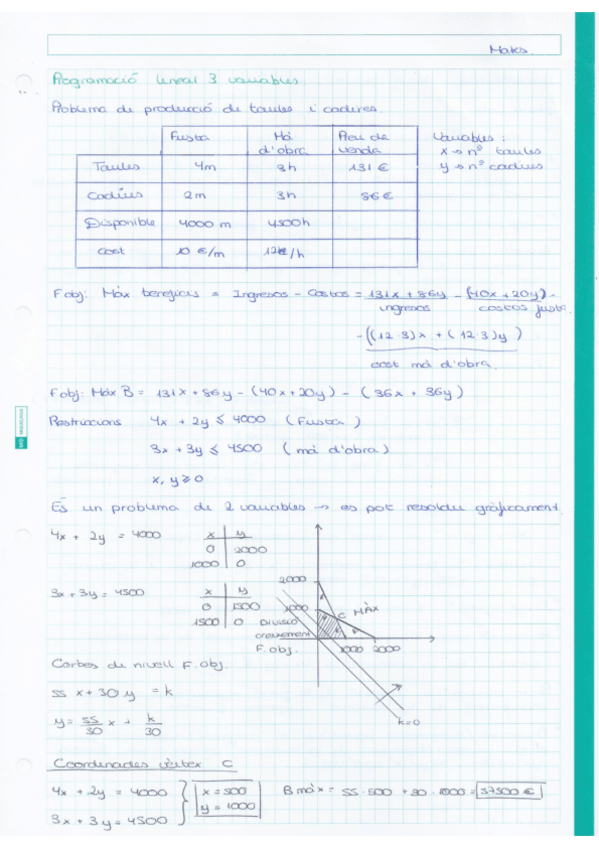 Mates.
Programació lineal 3 variables.
Problema de producció de taules i cadires.
Fusta Mà d'obra Preu de venda
Taules 4m 3h 131 €
Cadires 2m 3h 86 €
Disponible 4000 m 4500h
Cost 10 €/m 12€/h
Variables :
x → nº taules
y → nº cadires
F obj: Màx beneficis = Ingresos - Costos = 131x + 86y - (40x + 20y) -
ingresos costos fusta
- ((12·3)x + (12·3)y)
cost mà d'obra.
F obj: Màx B = 131x + 86y - (40x + 20y) - (36x + 36y)
Restriccions 4x + 2y ≤ 4000 (Fusta)
3x + 3y ≤ 4500 (mà d'obra)
x, y ≥ 0
És un problema de 2 variables → es pot resoldre gràficament.
4x + 2y = 4000
x y
0 2000
1000 0
3x + 3y = 4500
x y
0 1500
1500 0
2000
1000
C MÀX
DIVISIÓ
creixement
F. obj.
1000 2000
k=0
Corbes de nivell F. obj.
55 x + 30 y = k
y = 55/30 x + k/30
Coordenades vèrtex C
4x + 2y = 4000
3x + 3y = 4500
x = 500
y = 1000
B màx = 55 · 500 + 30 · 1000 = 57500 €